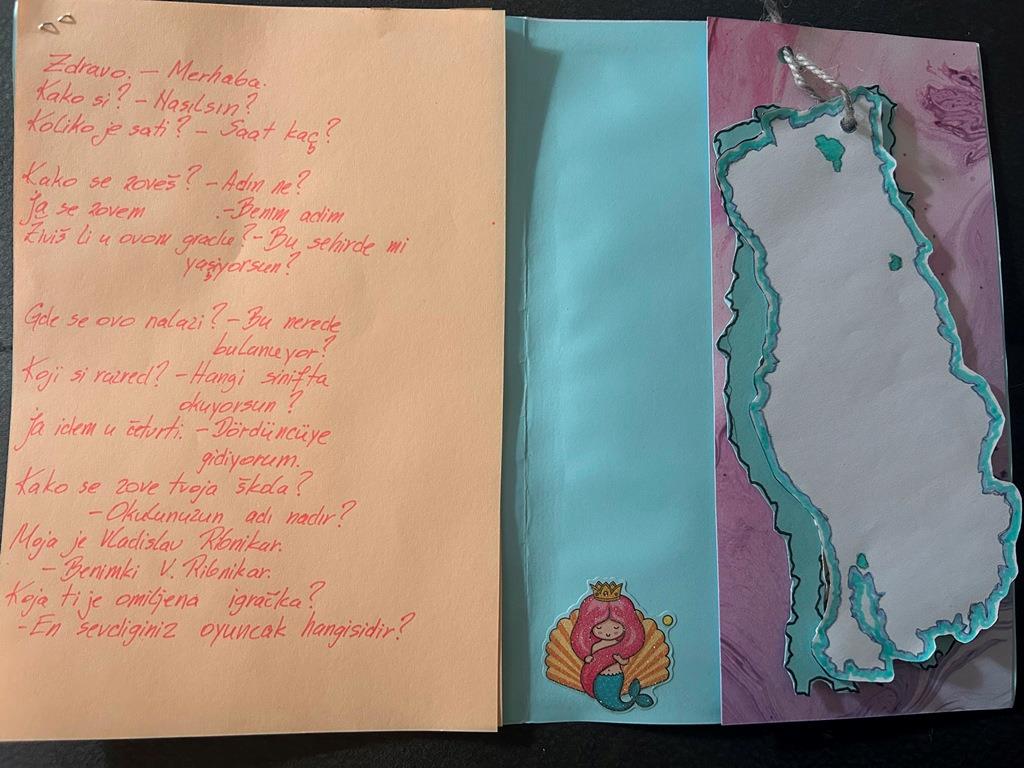 Zdravo. – Merhaba.
Kako si? – Nasılsın?
Koliko je sati? – Saat kaç?
Kako se zoveš? – Adın ne?
Ja se zovem .– Benim adim
Živiš li u ovom gradu? – Bu sehirde mi
yaşiyorsun?
Gde se ovo nalazi? – Bu nerede
bulunuyor?
Koji si razred? – Hangi sinifta
okuyorsun?
Ja idem u četvrti. – Dördüncüye
gidiyorum.
Kako se zove tvoja škola?
– Okulunuzun adı nadır?
Moja je Vladislav Ribnikar.
– Benimki V. Ribnikar.
Koja ti je omiljena igračka?
– En sevdiginiz oyuncak hangisidir?